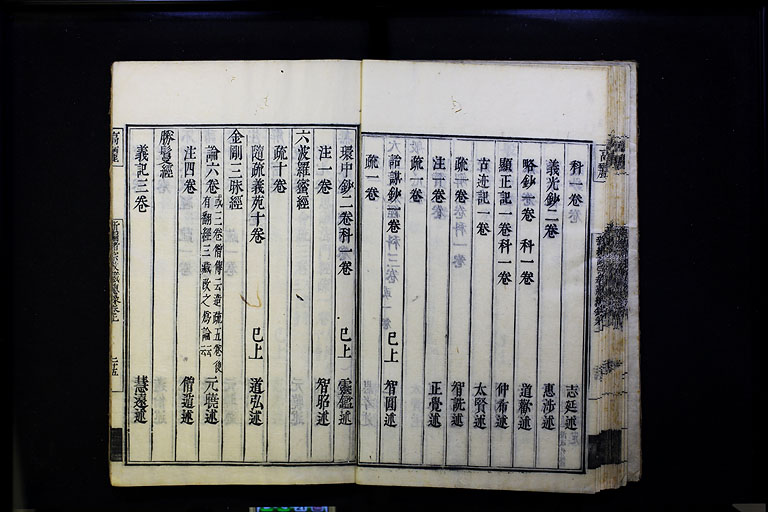 科一卷 志延述
義光鈔二卷 惠涉述
略鈔一卷 科一卷 道歡述
顯正記一卷科一卷 仲希述
古迹記一卷 太賢述
疏一卷 智詵述
注一卷 正覺述
疏一卷
詒謀鈔一卷 已上 智圓述
疏一卷
環中鈔二卷科一卷 已上 雲鑑述
注一卷 智昭述
六波羅蜜經
疏十卷
隨疏義苑十卷 已上 道弘述
金剛三昧經
論六卷 或三卷僧傳云造疏五卷後有翻經三藏改之爲論云云 元曉述
注四卷 僧遁述
勝鬘經
義記三卷 慧遠述